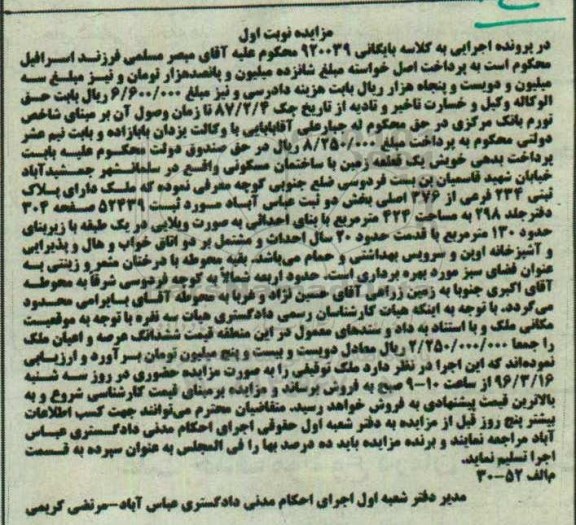 مزایده نوبت اول
در پرونده اجرایی به کلاسه بایگانی ۹۲۰۰۳۹ محکوم علیه آقای مبصر مسلمی فرزند اسرافیل
محکوم است به پرداخت اصل خواسته مبلغ شانزده میلیون و پانصدهزار تومان و نیز مبلغ سه
میلیون و دویست و پنجاه هزار ریال بابت هزینه دادرسی و نیز مبلغ ۶/۶۰۰/۰۰۰ ریال بابت حق
الوکاله وکیل و خسارت تاخیر و تادیه از تاریخ چک ۸۷/۲/۴ تا زمان وصول آن بر مبنای شاخص
تورم بانک مرکزی در حق محکوم له جبارعلی آقابابایی با وکالت یزدان بابازاده و بابت نیم عشر
دولتی محکوم به پرداخت مبلغ ۸/۲۵۰/۰۰۰ ریال در حق صندوق دولت محکوم علیه بابت
پرداخت بدهی خویش یک قطعه زمین با ساختمان مسکونی واقع در سلمانشهر جمشیدآباد
خیابان شهید قاسمیان بن بست فردوسی ضلع جنوبی کوچه معرفی نموده که ملک دارای پلاک
ثبتی ۲۳۴ فرعی از ۳۷۶ اصلی بخش دو ثبت عباس آباد مورد ثبت ۵۲۴۳۹ صفحه ۳۰۴
دفترجلد ۲۹۸ به مساحت ۴۲۴ مترمربع با بنای احداثی به صورت ویلایی در یک طبقه با زیربنای
حدود ۱۳۰ مترمربع با قدمت حدود ۲۰ سال احداث و مشتمل بر دو اتاق خواب و هال و پذیرایی
و آشپزخانه اوپن و سرویس بهداشتی و حمام می‌باشد. بقیه محوطه با درختان مثمر و زینتی به
عنوان فضای سبز مورد بهره برداری است. حدود اربعه شمالا به کوچه فردوسی شرقا به محوطه
آقای اکبری جنوبا به زمین زراعی آقای حسین نژاد و غربا به محوطه آقای بایرامی محدود
می‌گردد. با توجه به اینکه هیات کارشناسان رسمی دادگستری هیات سه نفره با توجه به موقعیت
مکانی ملک و با استناد به داد و ستدهای معمول در این منطقه قیمت ششدانگ عرصه و اعیان ملک
را جمعا ۲/۲۵۰/۰۰۰/۰۰۰ ریال معادل دویست و بیست و پنج میلیون تومان برآورد و ارزیابی
نموده‌اند که این اجرا در نظر دارد ملک توقیفی را به صورت مزایده حضوری در روز سه شنبه
۹۶/۳/۱۶ از ساعت ۱۰-۹ صبح به فروش برساند و مزایده برمبنای قیمت کارشناسی شروع و به
بالاترین قیمت پیشنهادی به فروش خواهد رسید. متقاضیان محترم می‌توانند جهت کسب اطلاعات
بیشتر پنج روز قبل از مزایده به دفتر شعبه اول حقوقی اجرای احکام مدنی دادگستری عباس
آباد مراجعه نمایند و برنده مزایده باید ده درصد بها را فی المجلس به عنوان سپرده به قسمت
اجرا تسلیم نماید.
م‌الف ۵۲-۳۰
مدیر دفتر شعبه اول اجرای احکام مدنی دادگستری عباس آباد-مرتضی کریمی